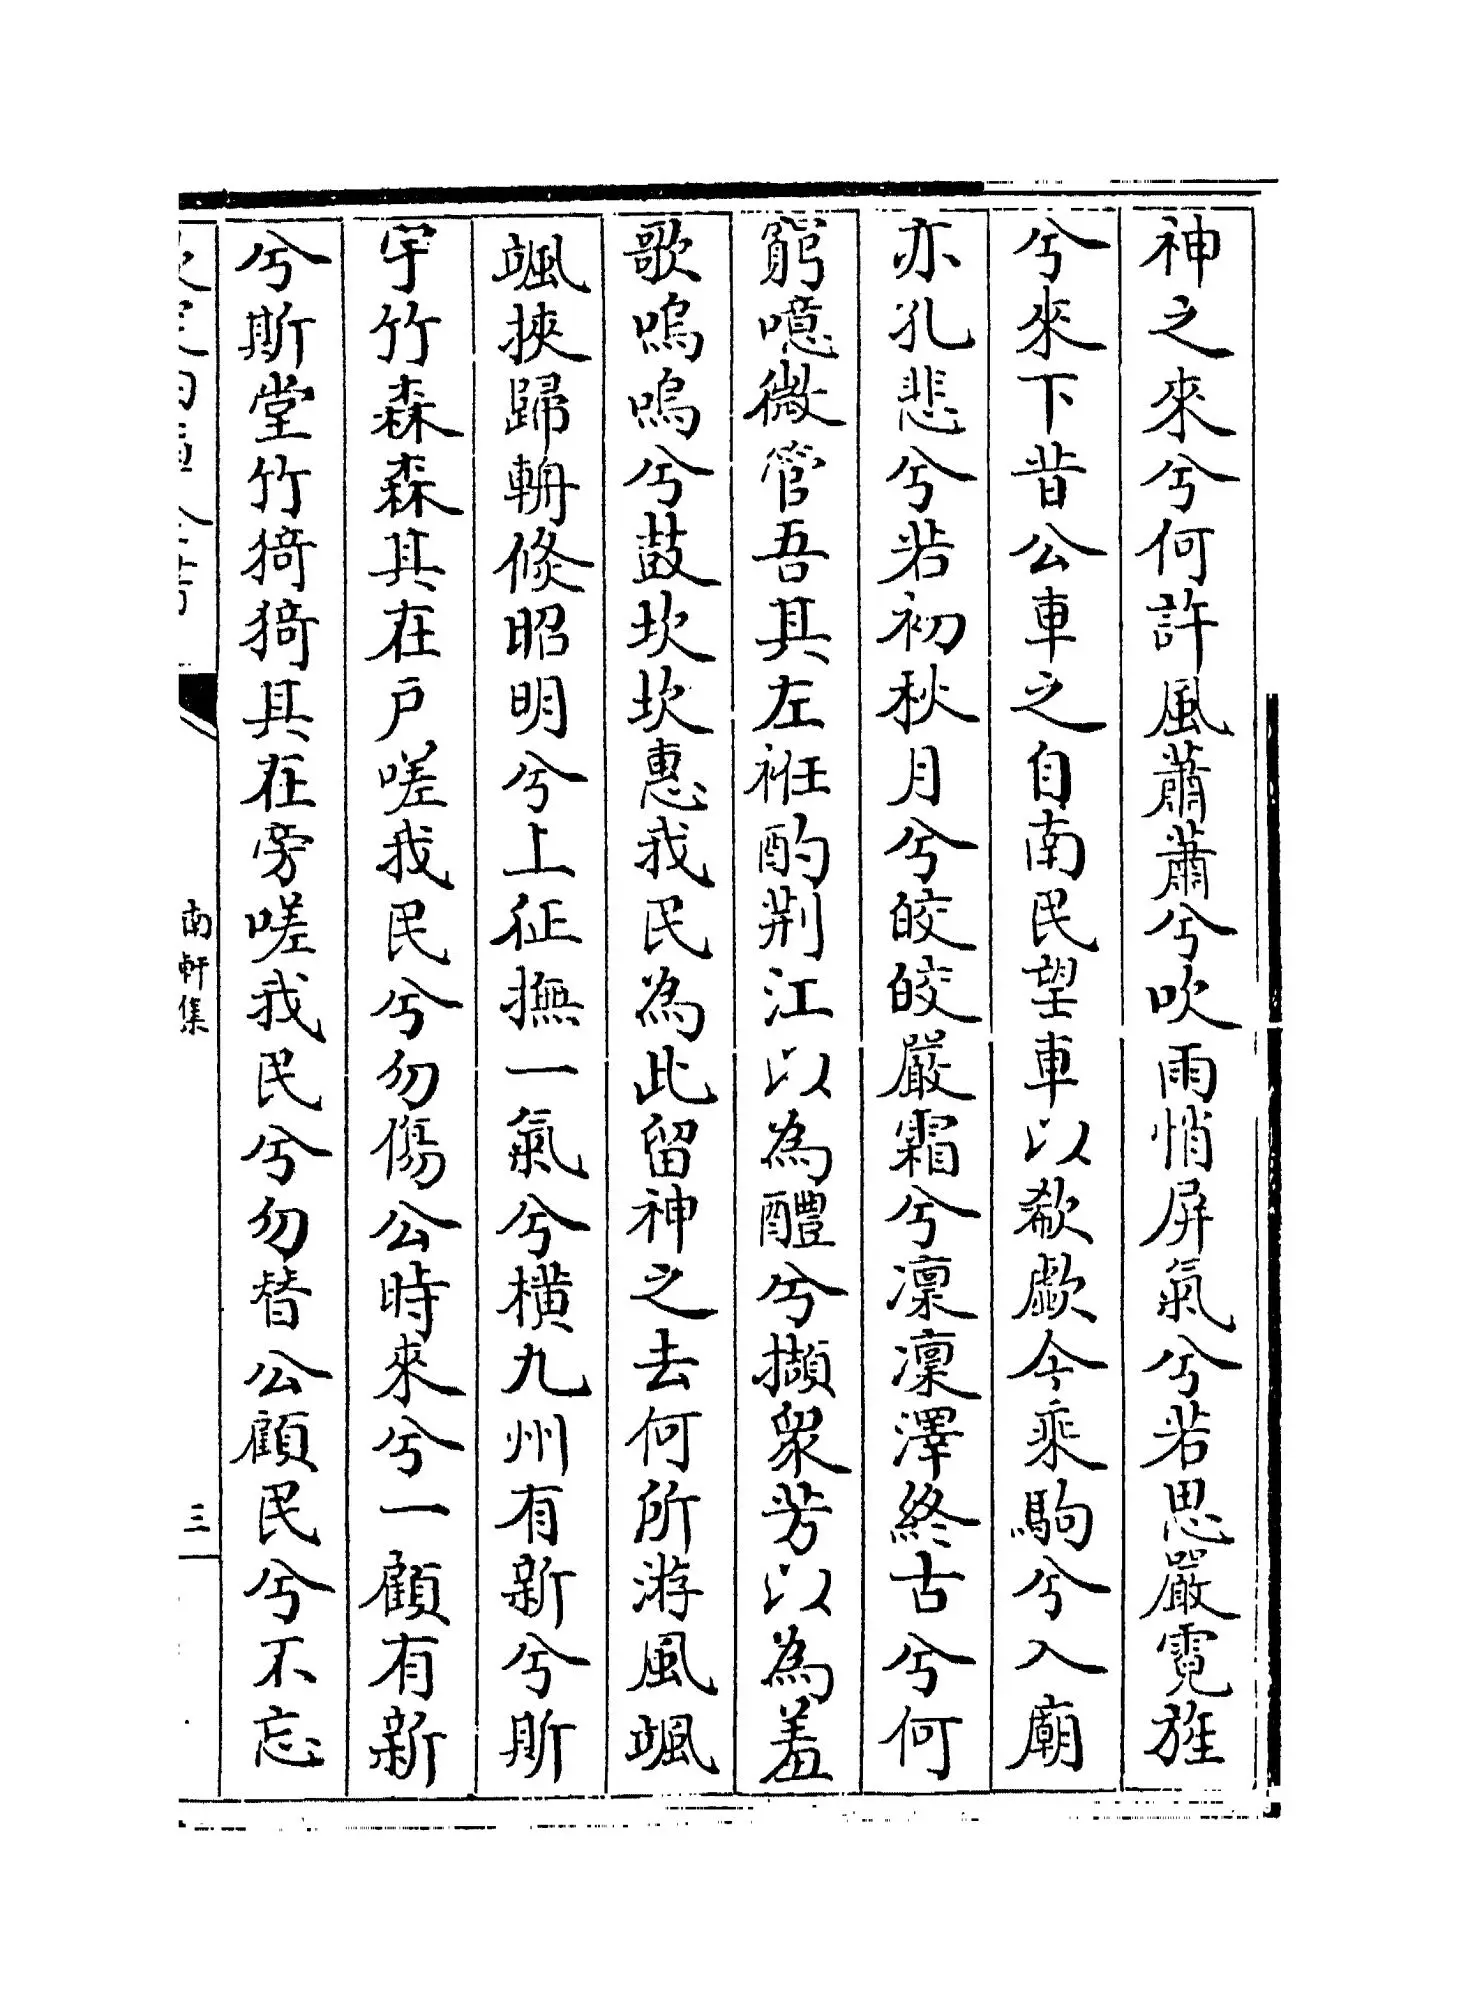 神之來兮何許風蕭蕭兮吹雨悄屏氣兮若思嚴霓旌
兮來下昔公車之自南民望車以欷歔今乘駒兮入廟
亦孔悲兮若初秋月兮皎皎嚴霜兮凜凜澤終古兮何
窮噫微管吾其左袵酌荆江以為醴兮擷衆芳以為羞
歌嗚嗚兮鼓坎坎惠我民為此留神之去何所游風颯
颯挾歸輈倐昭明兮上征撫一氣兮橫九州有新兮斯
宇竹森森其在戶嗟我民兮勿傷公時來兮一顧有新
兮斯堂竹猗猗其在旁嗟我民兮勿替公顧民兮不忘
南軒集
三